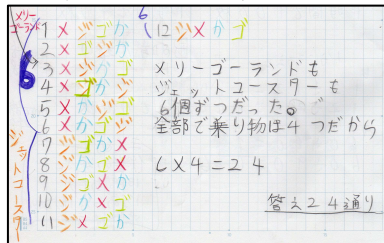 メリーゴーランド
6
1 メ ジ ゴ か
2 メ ゴ ジ か
3 メ ジ か ゴ
4 メ ゴ か ジ
5 メ か ジ ゴ
6 メ か ゴ ジ
ジェットコースター
7 ジ ゴ か メ
8 ジ か ゴ メ
9 ジ ゴ メ か
10 ジ か メ ゴ
11 ジ メ ゴ か
6
12 ジ メ か ゴ
メリーゴーランドも
ジェットコースターも
6個ずつだった。
全部で乗り物は4つだから
6×4=24
答え24通り